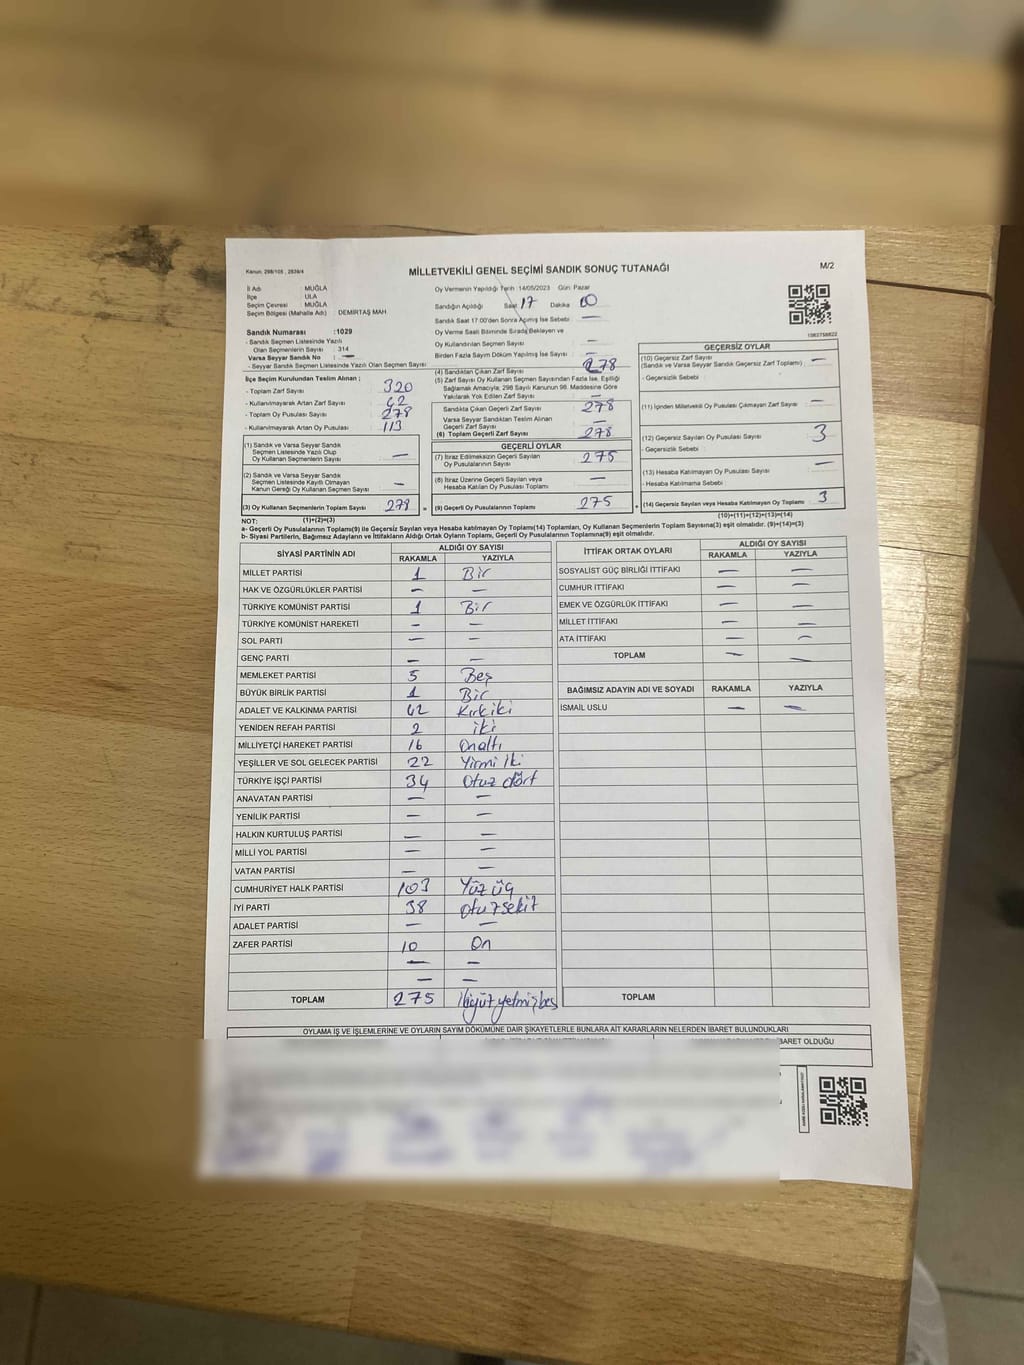 Kanun: 298/105 , 2839/4
MİLLETVEKİLİ GENEL SEÇİMİ SANDIK SONUÇ TUTANAĞI
M/2
İl Adı : MUĞLA
İlçe : ULA
Seçim Çevresi : MUĞLA
Seçim Bölgesi (Mahalle Adı) : DEMİRTAŞ MAH.
Sandık Numarası :1029
- Sandık Seçmen Listesinde Yazılı
Olan Seçmenlerin Sayısı : 314
Varsa Seyyar Sandık No : —
- Seyyar Sandık Seçmen Listesinde Yazılı Olan Seçmen Sayısı :
İlçe Seçim Kurulundan Teslim Alınan ;
- Toplam Zarf Sayısı : 320
- Kullanılmayarak Artan Zarf Sayısı : 42
- Toplam Oy Pusulası Sayısı : 278
- Kullanılmayarak Artan Oy Pusulası : 113
(1) Sandık ve Varsa Seyyar Sandık
Seçmen Listesinde Yazılı Olup
Oy Kullanan Seçmenlerin Sayısı : —
(2) Sandık ve Varsa Seyyar Sandık
Seçmen Listesinde Kayıtlı Olmayan
Kanun Gereği Oy Kullanan Seçmen Sayısı : —
(3) Oy Kullanan Seçmenlerin Toplam Sayısı : 278 =
(1)+(2)=(3)
Oy Vermenin Yapıldığı Tarih :14/05/2023 Gün: Pazar
Sandığın Açıldığı Saat 17 Dakika 00
Sandık Saat 17:00'den Sonra Açılmış İse Sebebi : —
Oy Verme Saati Bitiminde Sırada Bekleyen ve
Oy Kullandırılan Seçmen Sayısı : —
Birden Fazla Sayım Döküm Yapılmış İse Sayısı : —
(4) Sandıktan Çıkan Zarf Sayısı : 278
(5) Zarf Sayısı Oy Kullanan Seçmen Sayısından Fazla İse, Eşitliği
Sağlamak Amacıyla, 298 Sayılı Kanunun 98. Maddesine Göre
Yakılarak Yok Edilen Zarf Sayısı : —
Sandıkta Çıkan Geçerli Zarf Sayısı : 278
Varsa Seyyar Sandıktan Teslim Alınan
Geçerli Zarf Sayısı : —
(6) Toplam Geçerli Zarf Sayısı : 278
GEÇERLİ OYLAR
(7) İtiraz Edilmeksizin Geçerli Sayılan
Oy Pusulalarının Sayısı : 275
(8) İtiraz Üzerine Geçerli Sayılan veya
Hesaba Katılan Oy Pusulası Toplamı : —
(9) Geçerli Oy Pusulalarının Toplamı : 275 +
1063758822
GEÇERSİZ OYLAR
(10) Geçersiz Zarf Sayısı
(Sandık ve Varsa Seyyar Sandık Geçersiz Zarf Toplamı) : —
- Geçersizlik Sebebi :
(11) İçinden Milletvekili Oy Pusulası Çıkmayan Zarf Sayısı : —
(12) Geçersiz Sayılan Oy Pusulası Sayısı : 3
- Geçersizlik Sebebi :
(13) Hesaba Katılmayan Oy Pusulası Sayısı : —
- Hesaba Katılmama Sebebi :
(14) Geçersiz Sayılan veya Hesaba Katılmayan Oy Toplamı : 3
(10)+(11)+(12)+(13)=(14)
NOT:
a- Geçerli Oy Pusulalarının Toplamı(9) ile Geçersiz Sayılan veya Hesaba katılmayan Oy Toplamı(14) Toplamları, Oy Kullanan Seçmenlerin Toplam Sayısına(3) eşit olmalıdır. (9)+(14)=(3)
b- Siyasi Partilerin, Bağımsız Adayların ve İttifakların Aldığı Ortak Oyların Toplamı, Geçerli Oy Pusulalarının Toplamına(9) eşit olmalıdır.
SİYASİ PARTİNİN ADI ALDIĞI OY SAYISI
RAKAMLA YAZIYLA
MİLLET PARTİSİ 1 Bir
HAK VE ÖZGÜRLÜKLER PARTİSİ — —
TÜRKİYE KOMÜNİST PARTİSİ 1 Bir
TÜRKİYE KOMÜNİST HAREKETİ — —
SOL PARTİ — —
GENÇ PARTİ — —
MEMLEKET PARTİSİ 5 Beş
BÜYÜK BİRLİK PARTİSİ 1 Bir
ADALET VE KALKINMA PARTİSİ 42 Kırkiki
YENİDEN REFAH PARTİSİ 2 iki
MİLLİYETÇİ HAREKET PARTİSİ 16 Onaltı
YEŞİLLER VE SOL GELECEK PARTİSİ 22 Yirmi iki
TÜRKİYE İŞÇİ PARTİSİ 34 Otuz dört
ANAVATAN PARTİSİ — —
YENİLİK PARTİSİ — —
HALKIN KURTULUŞ PARTİSİ — —
MİLLİ YOL PARTİSİ — —
VATAN PARTİSİ — —
CUMHURİYET HALK PARTİSİ 103 Yüz üç
İYİ PARTİ 38 Otuzsekiz
ADALET PARTİSİ — —
ZAFER PARTİSİ 10 On
— —
— —
TOPLAM 275 İkiyüzyetmişbeş
İTTİFAK ORTAK OYLARI ALDIĞI OY SAYISI
RAKAMLA YAZIYLA
SOSYALİST GÜÇ BİRLİĞİ İTTİFAKI — —
CUMHUR İTTİFAKI — —
EMEK VE ÖZGÜRLÜK İTTİFAKI — —
MİLLET İTTİFAKI — —
ATA İTTİFAKI — —
TOPLAM — —
BAĞIMSIZ ADAYIN ADI VE SOYADI RAKAMLA YAZIYLA
İSMAİL USLU — —
TOPLAM
OYLAMA İŞ VE İŞLEMLERİNE VE OYLARIN SAYIM DÖKÜMÜNE DAİR ŞİKAYETLERLE BUNLARA AİT KARARLARIN NELERDEN İBARET BULUNDUKLARI
İBARET OLDUĞU